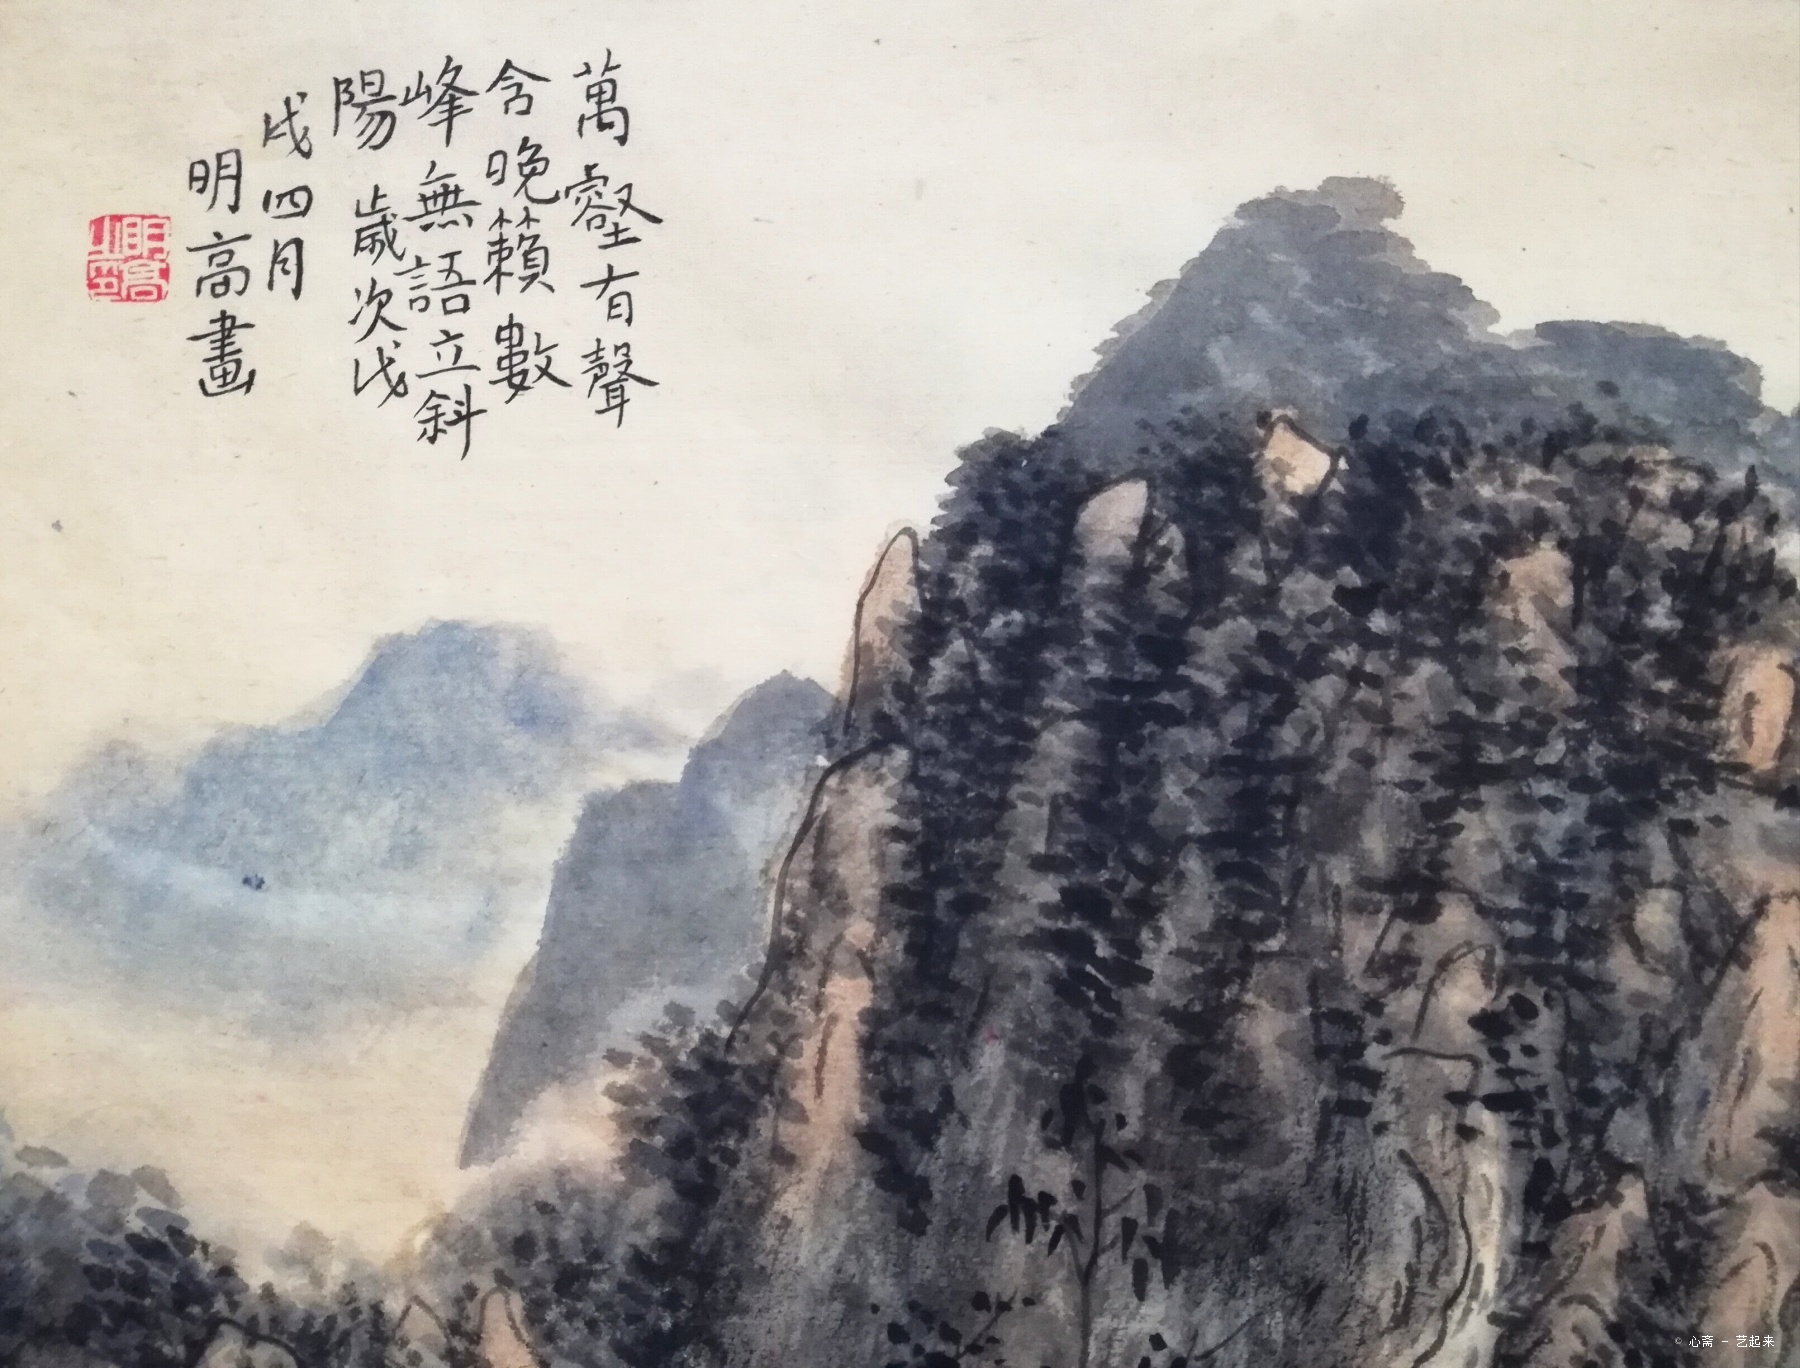 萬壑有聲
含晚籟數
峰無語立斜
陽 歲次戊
戌四月
明高畫
明高之印
© 心斋 - 艺起来